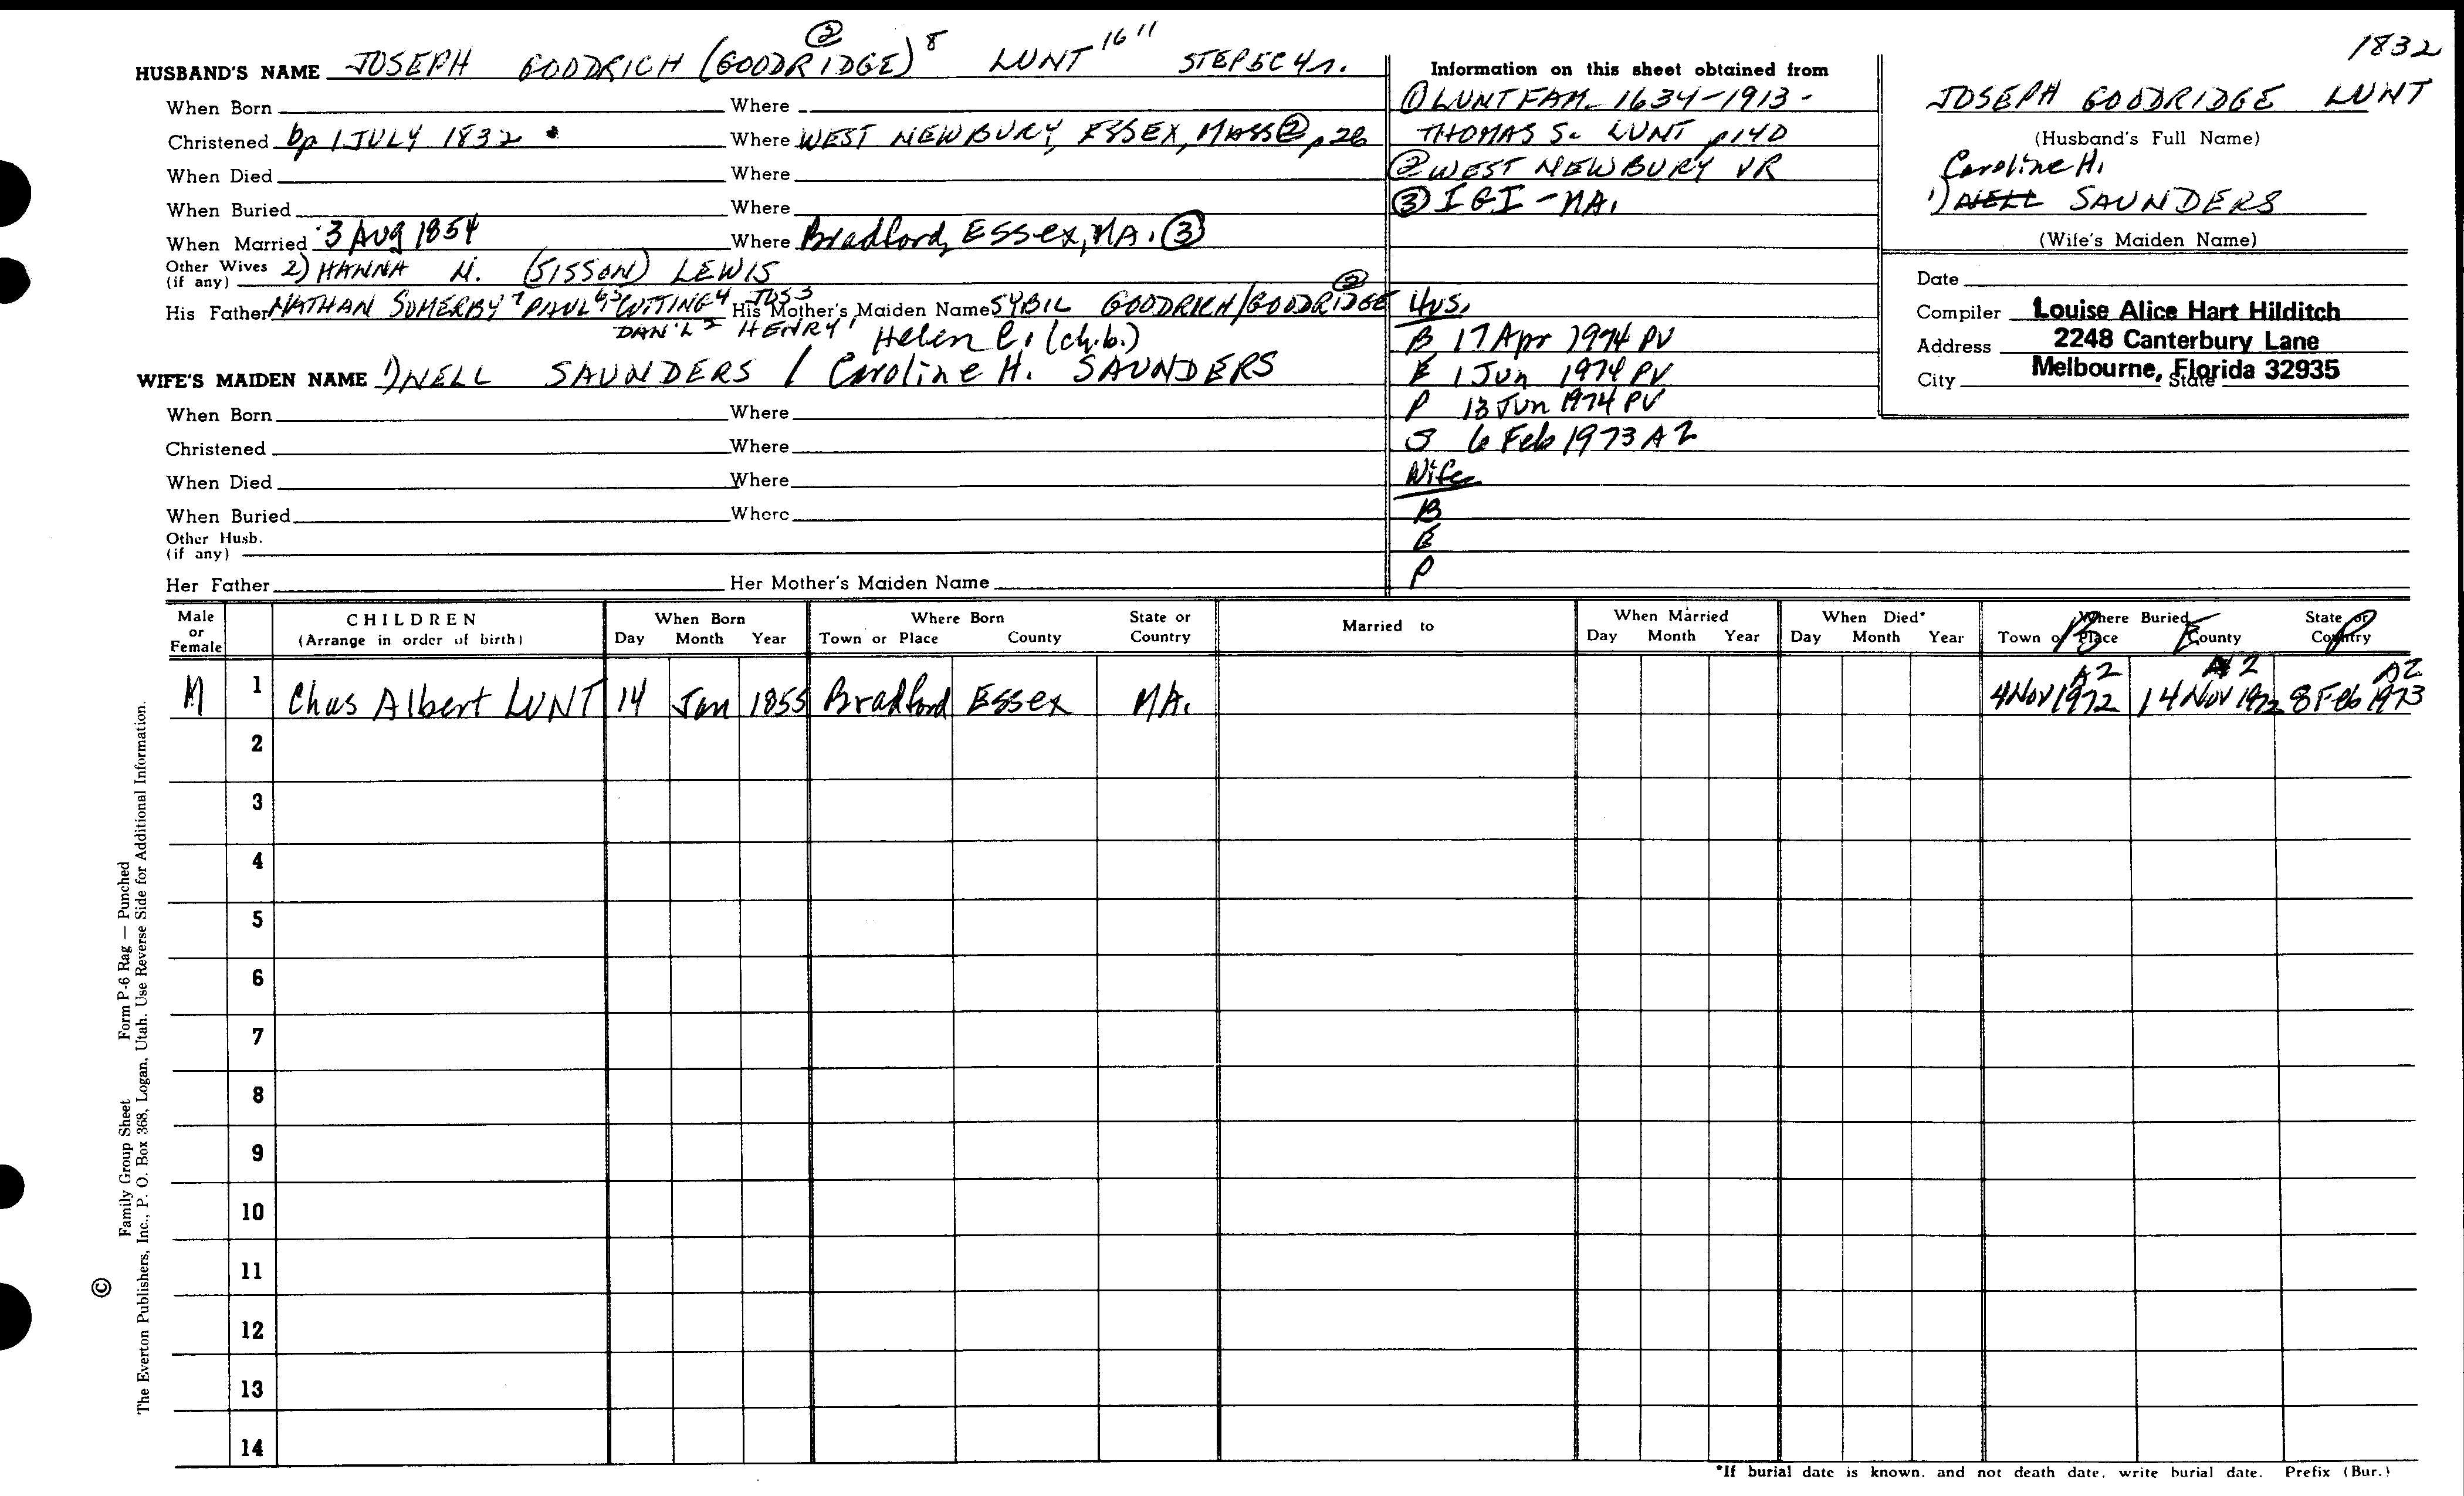 1832
HUSBAND'S NAME JOSEPH GOODRICH (GOODRIDGE)⁸ ② LUNT 16 11
When Born Where
Christened bp 1 JULY 1832 * Where WEST NEWBURY, ESSEX, MASS ② p 26
When Died Where
When Buried Where
When Married 3 Aug 1854 Where Bradford, Essex, MA. ③
Other Wives (if any) 2) HANNA N. (SISSON) LEWIS
His Father NATHAN SOMERBY⁷ PAUL⁶ ⁵ CUTTING⁴ JOS³ DAN'L² HENRY¹ His Mother's Maiden Name SYBIL GOODRICH/GOODRIDGE ②
Helen C. (ch.b.)
WIFE'S MAIDEN NAME 1) NELL SAUNDERS / Caroline H. SAUNDERS
When Born Where
Christened Where
When Died Where
When Buried Where
Other Husb. (if any)
Her Father Her Mother's Maiden Name
Information on this sheet obtained from
① LUNT FAM. 1634-1913 -
THOMAS S. LUNT p 140
② WEST NEWBURY VR
③ IGI - MA.
Hus.
B 17 Apr 1974 PV
E 1 Jun 1974 PV
P 13 Jun 1974 PV
S 6 Feb 1973 AZ
Wife
B
E
P
JOSEPH GOODRIDGE LUNT
(Husband's Full Name)
Caroline H.
1) NELL SAUNDERS
(Wife's Maiden Name)
Date
Compiler Louise Alice Hart Hilditch
Address 2248 Canterbury Lane
City Melbourne, Florida 32935 State
Male or Female CHILDREN (Arrange in order of birth) When Born Day Month Year Where Born Town or Place County State or Country Married to When Married Day Month Year When Died* Day Month Year Where Buried Town or Place County State or Country B E P
M 1 Chas Albert LUNT 14 Jan 1855 Bradford Essex MA. 4 Nov 1972 AZ 14 Nov 1972 AZ 8 Feb 1973 AZ
2
3
4
5
6
7
8
9
10
11
12
13
14
*If burial date is known, and not death date, write burial date. Prefix (Bur.)
© Family Group Sheet Form P-6 Rag — Punched
The Everton Publishers, Inc., P. O. Box 368, Logan, Utah. Use Reverse Side for Additional Information.